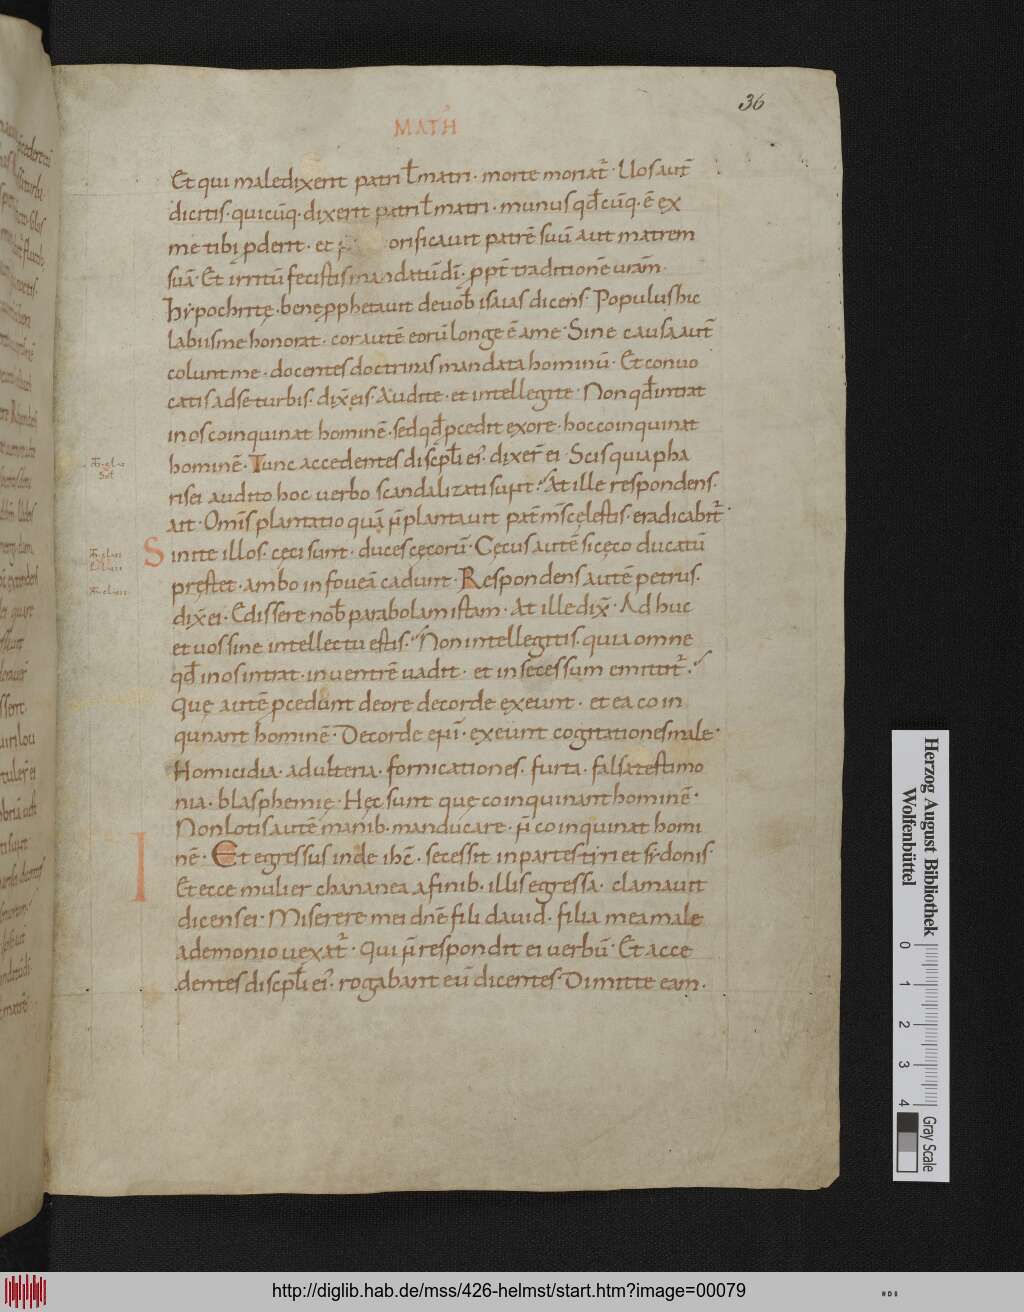 36
MATH̄
Et qui maledixerit patri ł matri · morte moriat᷑ · Uos aut̄
dicitis · quicūq · dixerit patri ł matri · munus qđcūq · ē ex
me tibi ꝓderit · et orificauit patrē suū aut matrem
suā · Et irritū fecistis mandatū dī · ꝓpt̄ traditionē uram̄ ·
hypochritę · bene ꝓphetauit de uob̄ isaias dicens · Populus hic
labiis me honorat · cor autē eorū longe ē a me · Sine causa aut̄
colunt me · docentes doctrinas mandata hominū · Et conuo
catis ad se turbis · dix̄ eis · Audite · et intellegite · Non qđ intrat
in os coinquinat hominē · sed qđ ꝓcedit ex ore · hoc coinquinat
hominē · Tunc accedentes discpłi ei᷒ · dixer̄ ei · Scis quia pha
risei audito hoc uerbo scandalizati sunt · At ille respondens ·
ait · Omīs plantatio quā n̄ plantauit pat̄ ms̄ cęlestis · eradicabit᷑ ·
Sinite illos · cęci sunt · duces cęcorū · Cęcus autē si cęco ducatū
pręstet · ambo in foueā cadunt · Respondens autē petrus ·
dix̄ ei · Edissere nob̄ parabolam istam · At ille dix̄ · Ad huc
et uos sine intellectu estis · Non intellegitis · quia omne
qđ in os intrat · in uentrē uadit · et in secessum emittit᷑ ·
Quę autē ꝓcedunt de ore de corde exeunt · et ea coin
qunant hominē · De corde eni᷒ · exeunt cogitationes male ·
Homicidia · adulteria · fornicationes · furta · falsa testimo
nia · blasphemię · Hęc sunt quę coinquinant hominē ·
Non lotis autē manib · manducare · n̄ coinquinat homi
nē · Et egressus inde ihc̄ · secessit in partes tyri et sydonis
Et ecce mulier chananea a finib · illis egressa · clamauit
dicens ei · Miserere mei dnē fili dauid · filia mea male
a demonio uexat᷑ · Qui n̄ respondit ei uerbū · Et acce
dentes discpłi ei᷒ · rogabant eū dicentes · Dimitte eam ·
Herzog August Bibliothek
Wolfenbüttel
0 1 2 3 4
Gray Scale
http://diglib.hab.de/mss/426-helmst/start.htm?image=00079